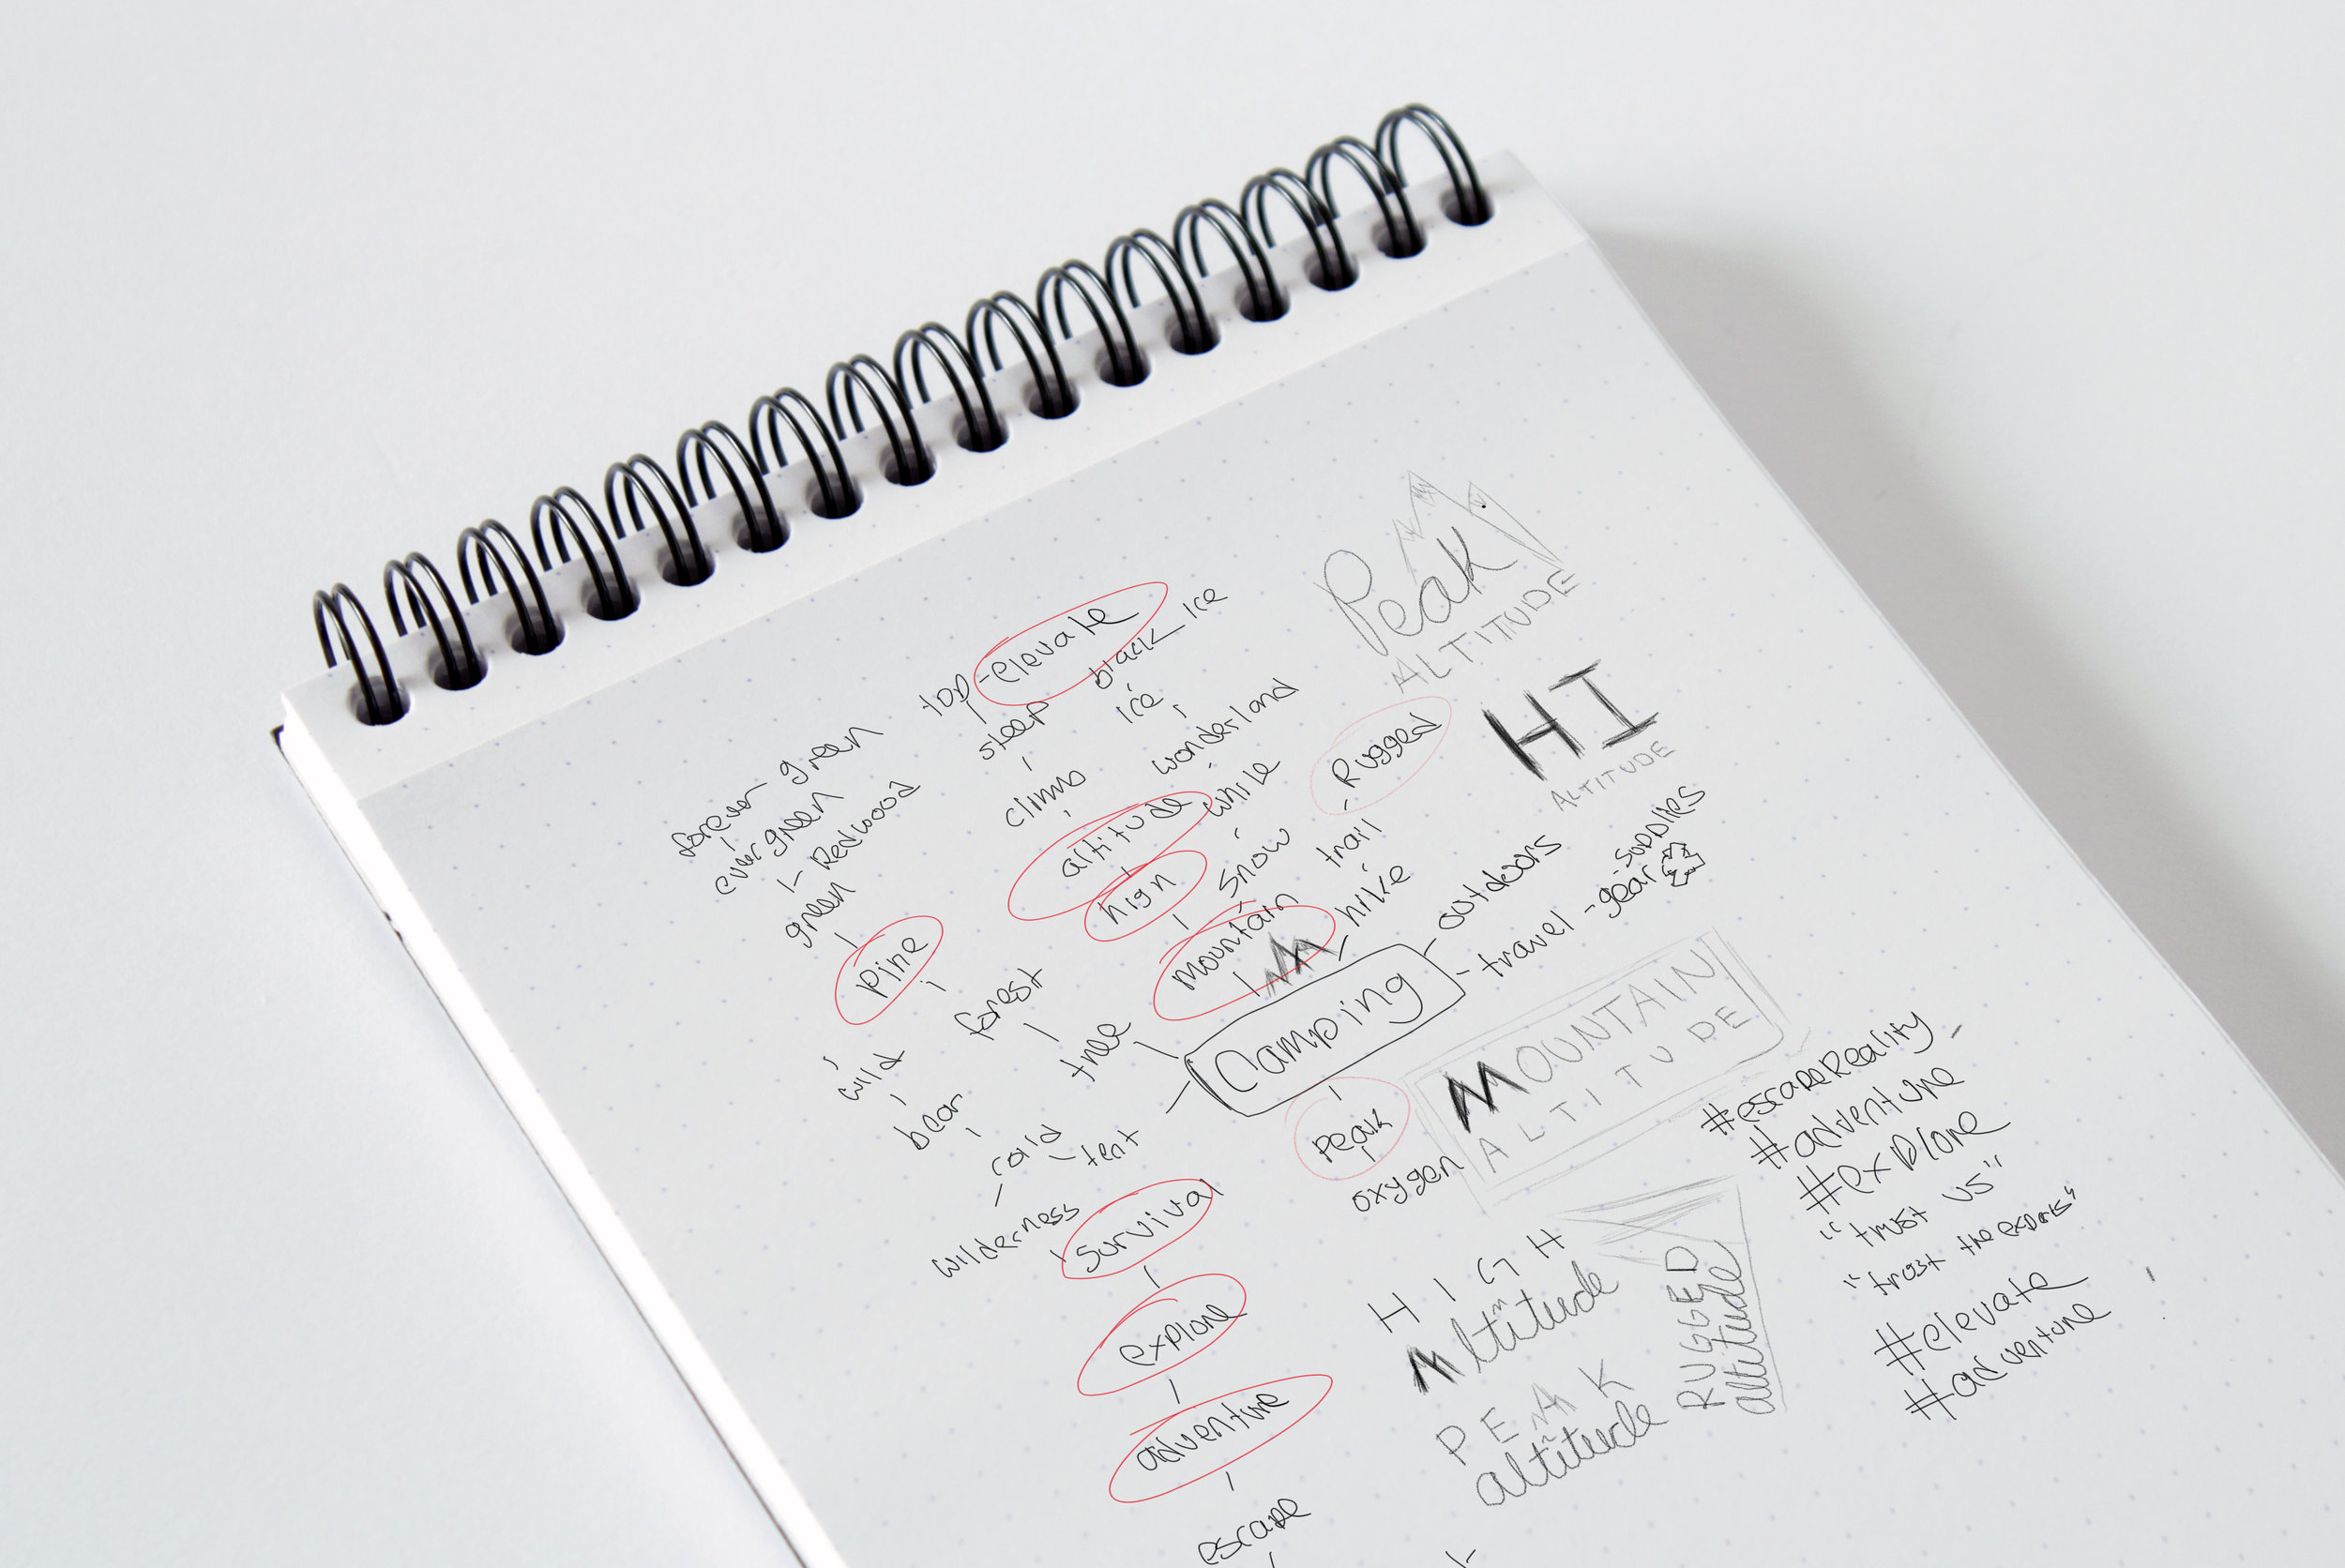 top - elevate
steep
climb
altitude
high
mountain
black ice
ice
wonderland
white
snow
Rugged
trail
hike
forever green
evergreen
Redwood
green
Pine
forest
tree
wild
bear
cold
tent
wilderness
Survival
explore
adventure
escape
Camping
outdoors
travel - gear
- supplies
Peak
oxygen
Peak
ALTITUDE
HI
ALTITUDE
MOUNTAIN
ALTITUDE
HIGH
Altitude
PEAK
altitude
RUGGED
altitude
#escapeReality
#adventure
#explore
"trust us"
"trust the experts"
#elevate
#adventure